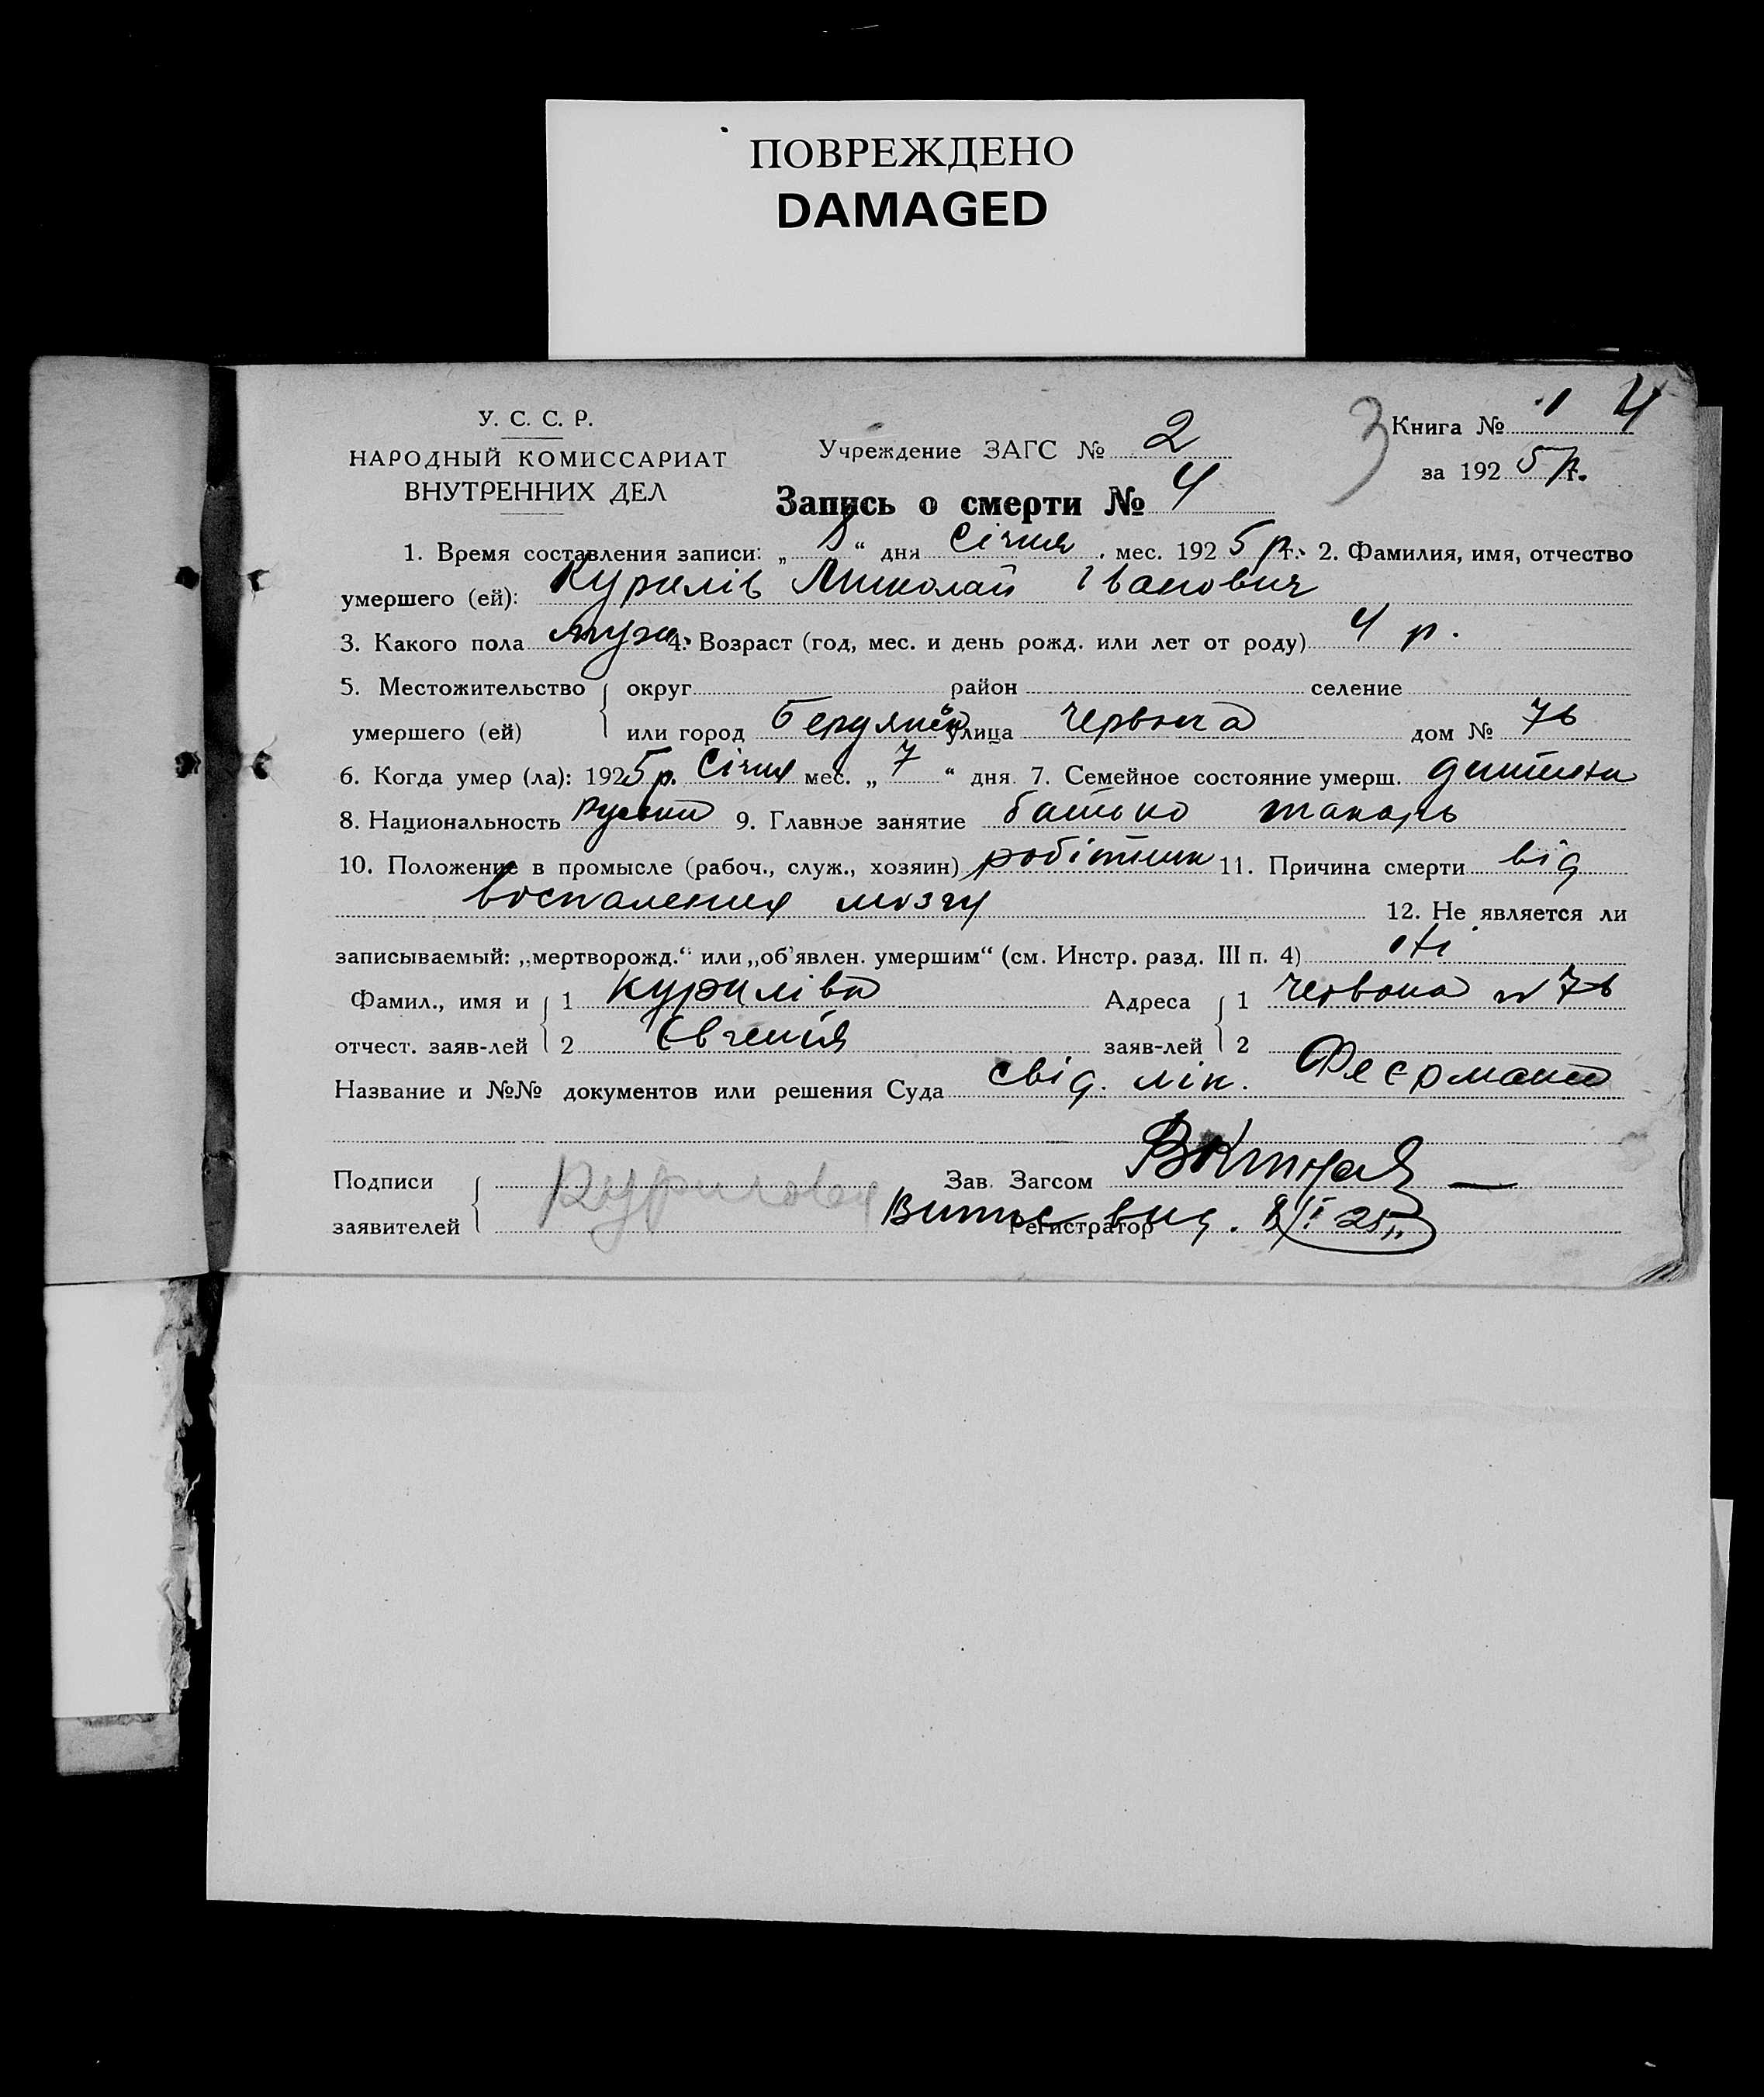 ПОВРЕЖДЕНО
DAMAGED
У. С. С. Р.
НАРОДНЫЙ КОМИССАРИАТ
ВНУТРЕННИХ ДЕЛ
Учреждение ЗАГС № 2
Запись о смерти № 4
3 Книга № 1 4
за 1925 р.
1. Время составления записи: „8“ дня Січня мес. 1925 р. 2. Фамилия, имя, отчество
умершего (ей): Курилів Миколай Іванович
3. Какого пола муж. 4. Возраст (год, мес. и день рожд. или лет от роду) 4 р.
5. Местожительство округ район селение
умершего (ей) или город Бердянськ улица Червона дом № 76
6. Когда умер (ла): 1925 р. Січня мес. „7“ дня 7. Семейное состояние умерш. дитина
8. Национальность руский 9. Главное занятие батько токарь
10. Положение в промысле (рабоч., служ., хозяин) робітник 11. Причина смерти від
воспаления мозгу 12. Не является ли
записываемый: „мертворожд.“ или „об'явлен. умершим“ (см. Инстр. разд. III п. 4) ні
Фамил., имя и 1 Куриліва Адреса 1 Червона № 76
отчест. заяв-лей 2 Євгенія заяв-лей 2
Название и №№ документов или решения Суда свід. лік.
Подписи Курилова Зав. Загсом
заявителей Регистратор Випис вид. 8/I 25 р.